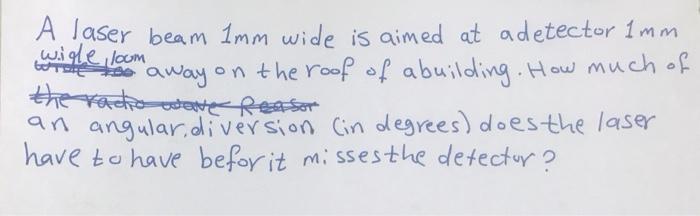 A laser beam 1mm wide is aimed at a detector 1mm
wide, 100m away on the roof of a building. How much of
an angular, diversion (in degrees) does the laser
have to have befor it misses the detector?